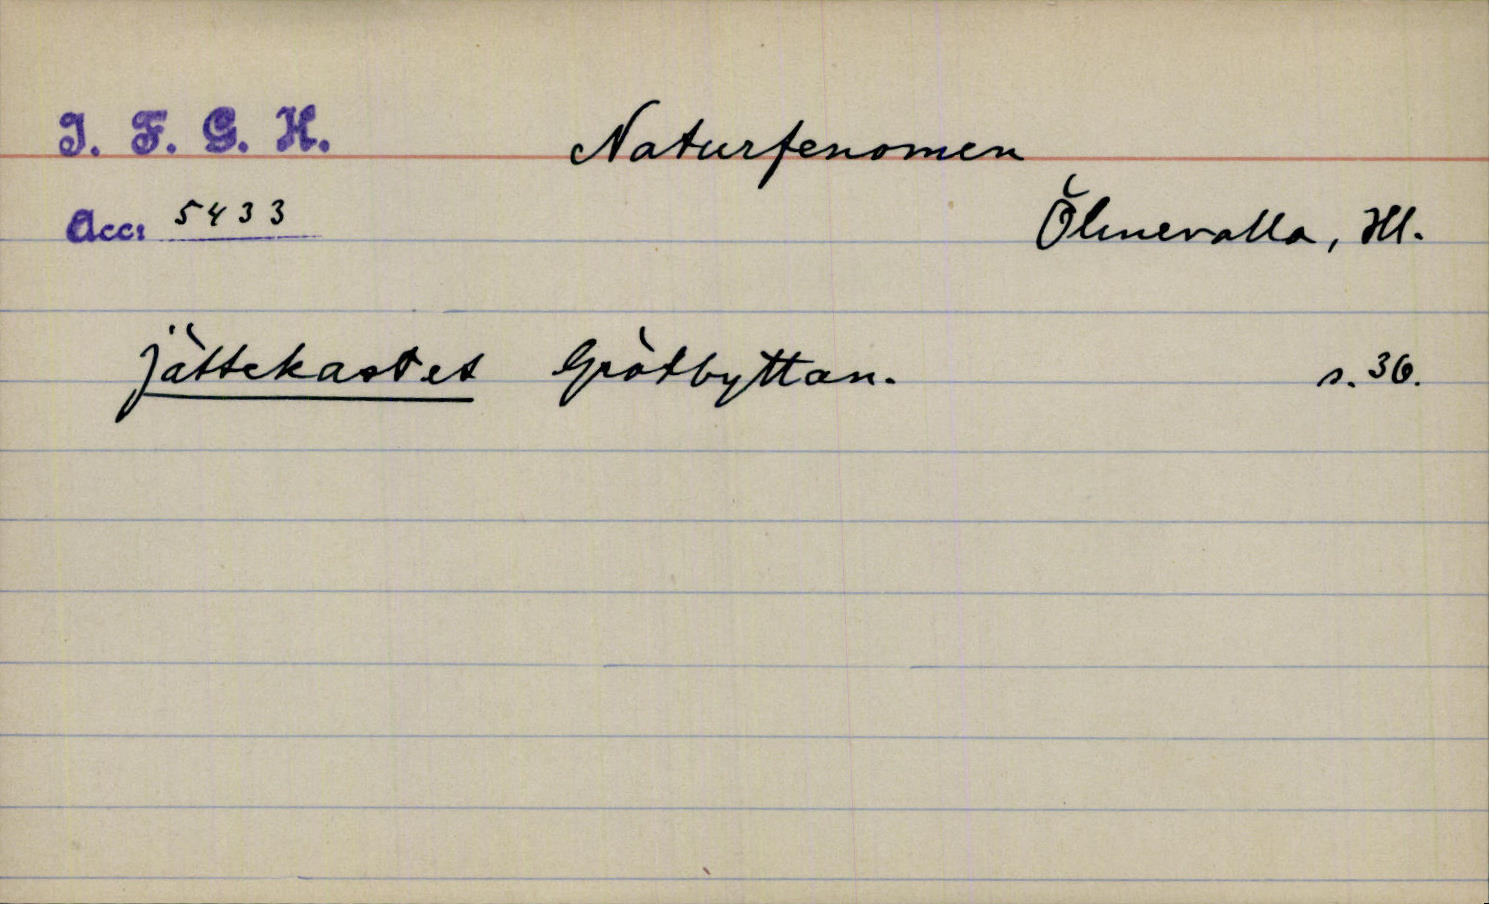 I. F. G. H. Naturfenomen
Acc: 5433 Ölmevalla, Hl.
Jättekastet Grötbyttan. s. 36.